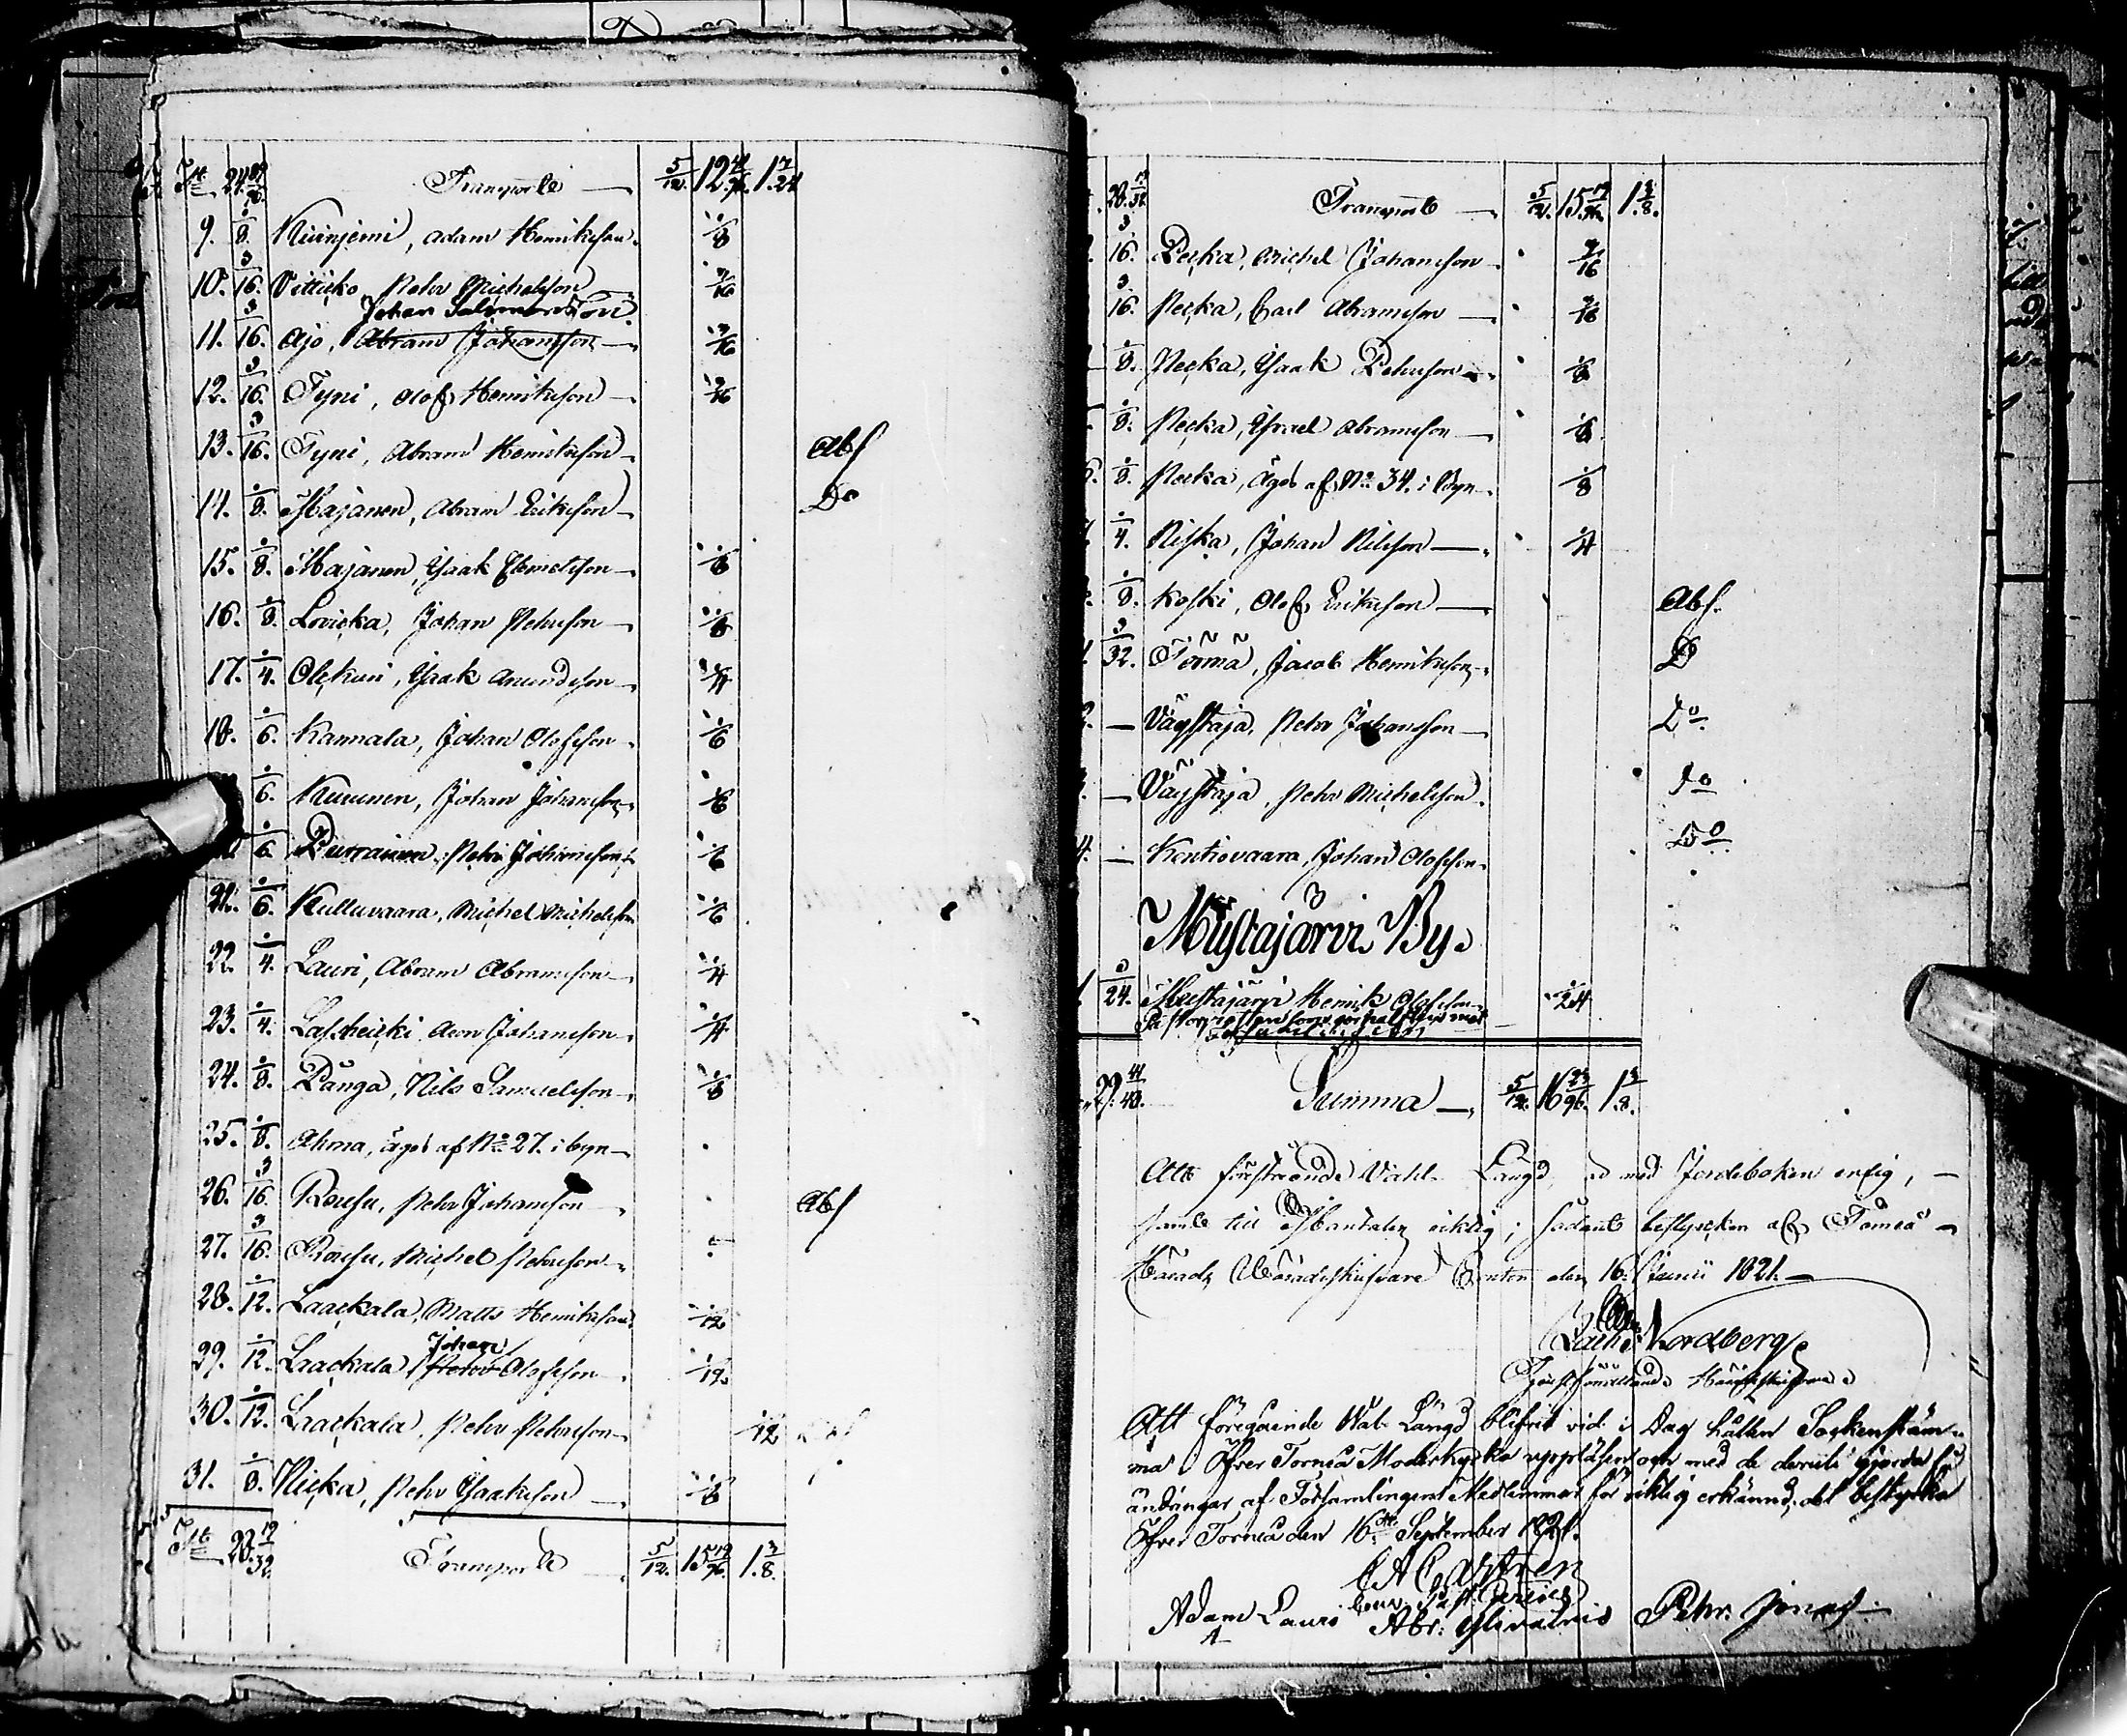 Transporte — 5/12. 12 1 7/24
9. 1/8. Kuinjemi, Adam Henrikeson. 1/8
10. 3/16. Vitticko Pehr Michelsson 3/16
Johan Salomonsson
11. 3/16. Ajo, Abram Johansson 3/16
12. 3/16. Tyni, Olof Henrikeson — 3/16
13. 3/16. Tyni, Abram Henrikeson — Abs
14. 1/8. Majanen, Abram Erikeson — Do
15. 1/8. Majanen, Isaak Clemetsson — 1/8
16. 1/8. Lovicka, Johan Pehrsson — 1/8
17. 1/4. Olckuri, Isaak Amundsson — 1/4
18. 1/6. Kannala, Johan Olofsson — 1/6
1/6. Kurunen, Johan Johansson 1/6
1/6. Purrainen, Pehr Johansson 1/6
21. 1/6. Kulluvaara, Michel Michelsson 1/6
22. 1/4. Lauri, Abram Abramsson — 1/4
23. 1/4. Lascheicki Aron Johansson — 1/4
24. 1/8. Pånga, Nils Samuelsson — 1/8
25. 1/8. Ahma, äges af No 27. i byn —
26. 3/16. Rousu, Pehr Johansson Abs
27. 3/16. Rousu, Michel Pehrsson —
28. 1/12. Laackala, Matts Henrikeson 1/12
Johan
29. 1/12. Laackala Pehr Olofsson 1/12.
30. 1/12. Laackala, Pehr Pehrsson — 1/12
31. 1/8. Nicka, Pehr Isaaksson — 1/8
28. 19/32. Transporte 5/12. 15 19/96. 1 3/8.
28. 19/32. Transporte — 5/12. 15 19/96. 1 3/8.
3/16. Pecka, Michel Johansson — 3/16
3/16. Pecka, Carl Abramsson — 3/16
1/8. Pecka, Isaak Pehrsson 1/8
1/8. Pecka, Israel Abramsson — 1/8
1/8. Pecka, äges af No 34. i Byn — 1/8
1/4. Niska, Johan Nilsson — 1/4
1/8. Koski, Olof Erikeson — Abs.
3/32. Törmä, Jacob Henrikeson — D
— Väystäjä, Pehr Johansson — Do
— Väystäjä, Pehr Michelsson. Do
4. — Kentiovaara, Johan Olofsson — Do
Mustajärvi By.
1. 1/24. Mustajärvi Henrik Olofsson 1/24
29. Summa — 5/12. 16 23/96. 1 3/8.
Att förestående Vahl Längd, är med Jordeboken enlig, —
samt till Mantalen riktig; sådant bestyrckes af Torneå —
Härads Häradsskrifvare Contor den 16. Junii 1821. —
Zach: Nordberg
Tjenstförrättande Häradsskrifvare
Att föregående Wal Längd blifvit vid i Dag hållen Sockenstäm-
ma i Öfver Torneå Moderkyrka uppläsen och med de deruti gjorda för
ändringar af Församlingens Medlemmar för riktig erkännd, det bestyrkes
Öfver Torneå den 16de September 1821.
E A Castrén
Adam Lauri Abr: Ylivainio Pehr. Jonas